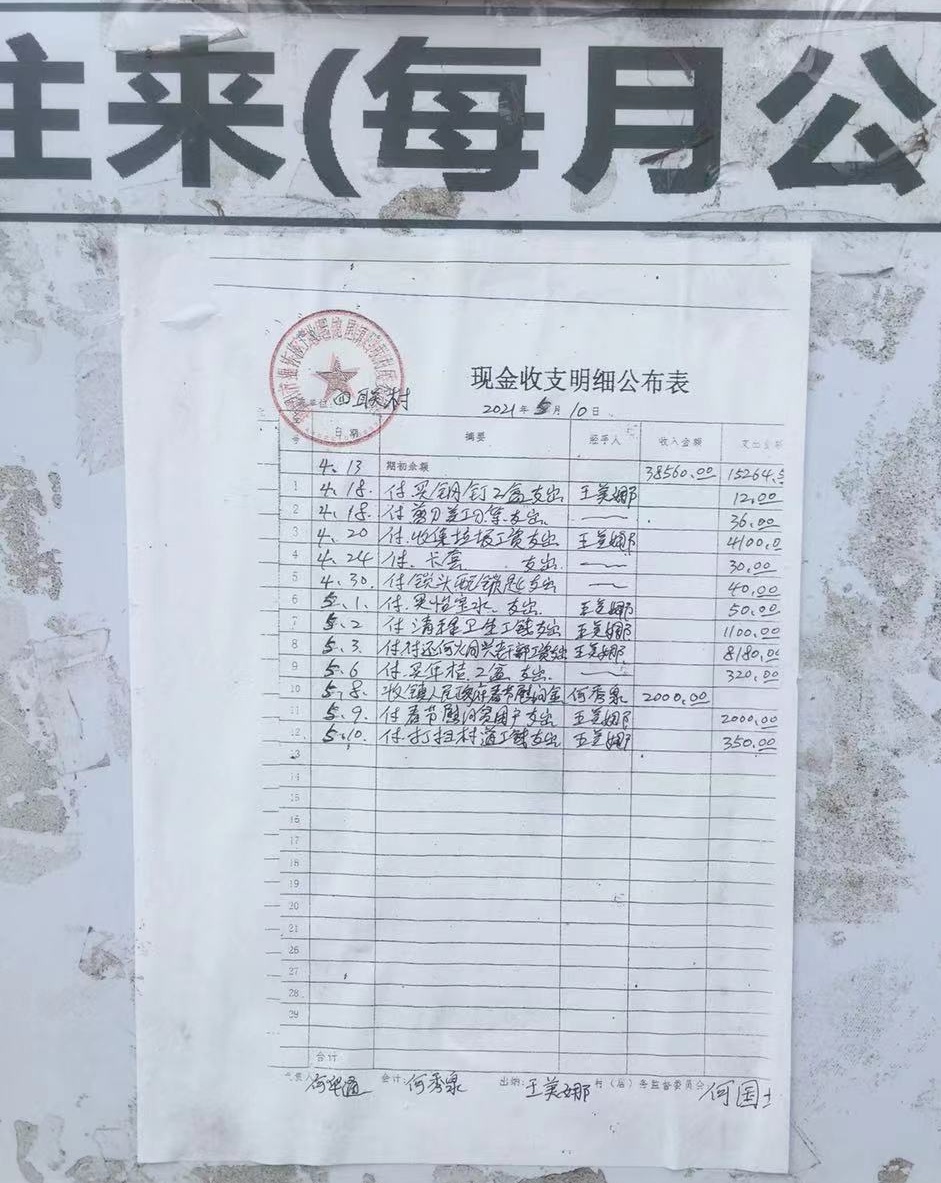 往来(每月公
现金收支明细公布表
单位 四联村
2021年5月10日
号 日期 摘要 经手人 收入金额 支出金额
4.13 期初余额 38560.00 15264.5
1 4.18. 付买钢钉2盒支出 王美娜 12.00
2 4.18. 付剪刀美工刀等支出 〃 36.00
3 4.20 付收集垃圾工资支出 王美娜 4100.0
4 4.24 付卡套 支出 〃 30.00
5 4.30. 付锁头配锁匙支出 〃 40.00
6 5.1. 付买怡宝水支出 王美娜 50.00
7 5.2 付清理卫生工钱支出 王美娜 1100.00
8 5.3. 付村还何火同 工资支出 王美娜 8180.00
9 5.6 付买年桔2盆支出 〃 320.00
10 5.8. 收镇人民政府春节慰问金 何秀泉 2000.00
11 5.9. 付春节慰问贫困户支出 王美娜 2000.00
12 5.10. 付打扫村道工钱支出 王美娜 350.00
13
14
15
16
17
18
19
20
21
26
27
28
39
合计
代表人 何华通 会计:何秀泉 出纳:王美娜 村(居)务监督委员会 何国